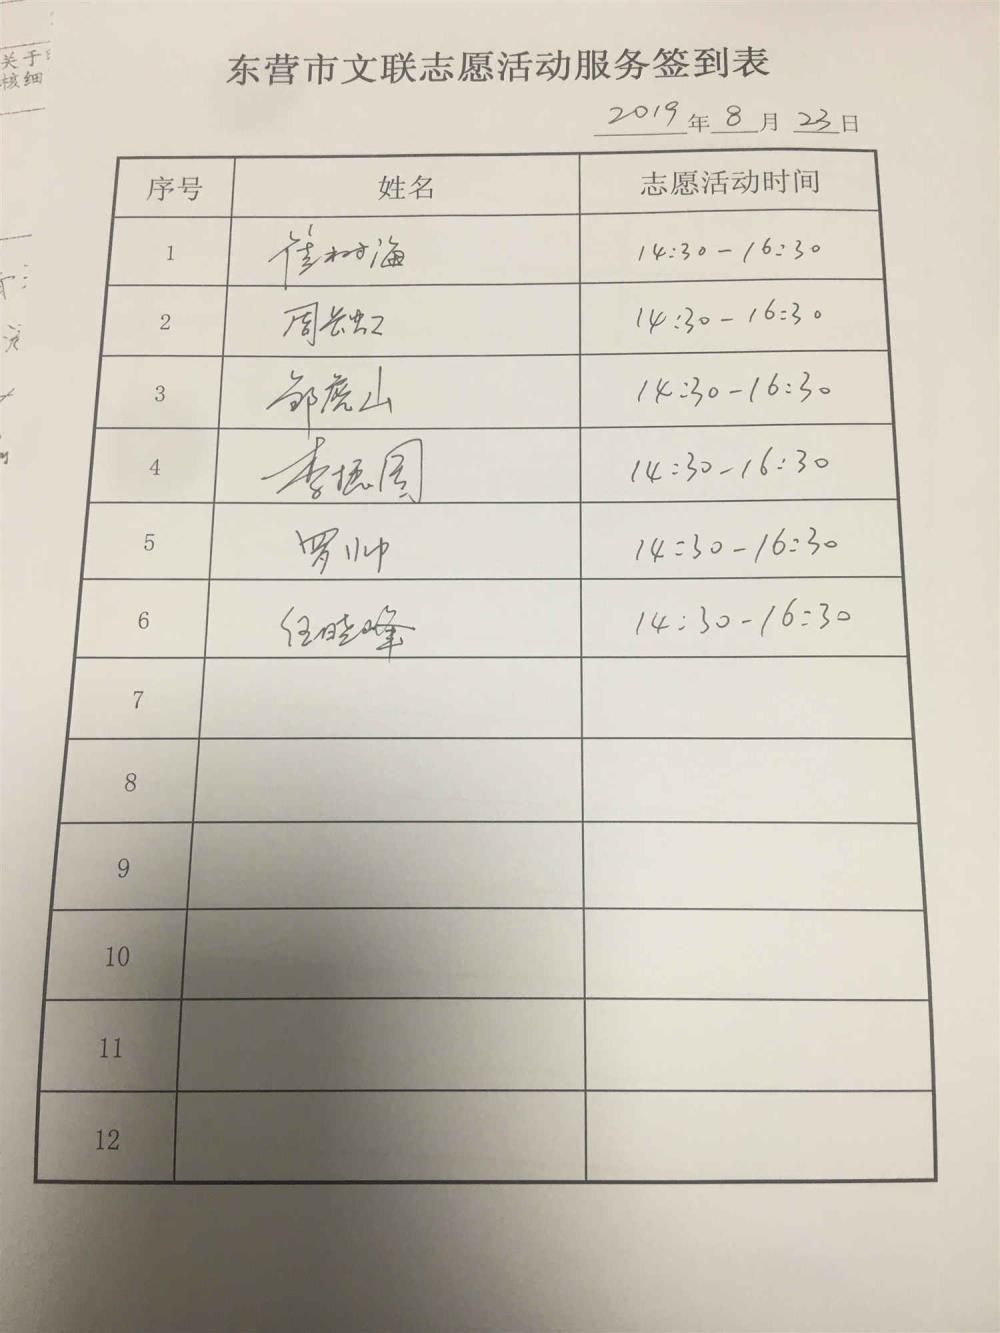 关于
核细
东营市文联志愿活动服务签到表
2019年8月23日
序号 姓名 志愿活动时间
1 崔树海 14:30-16:30
2 周长虹 14:30-16:30
3 邹虎山 14:30-16:30
4 李振国 14:30-16:30
5 罗帅 14:30-16:30
6 任晓峰 14:30-16:30
7
8
9
10
11
12